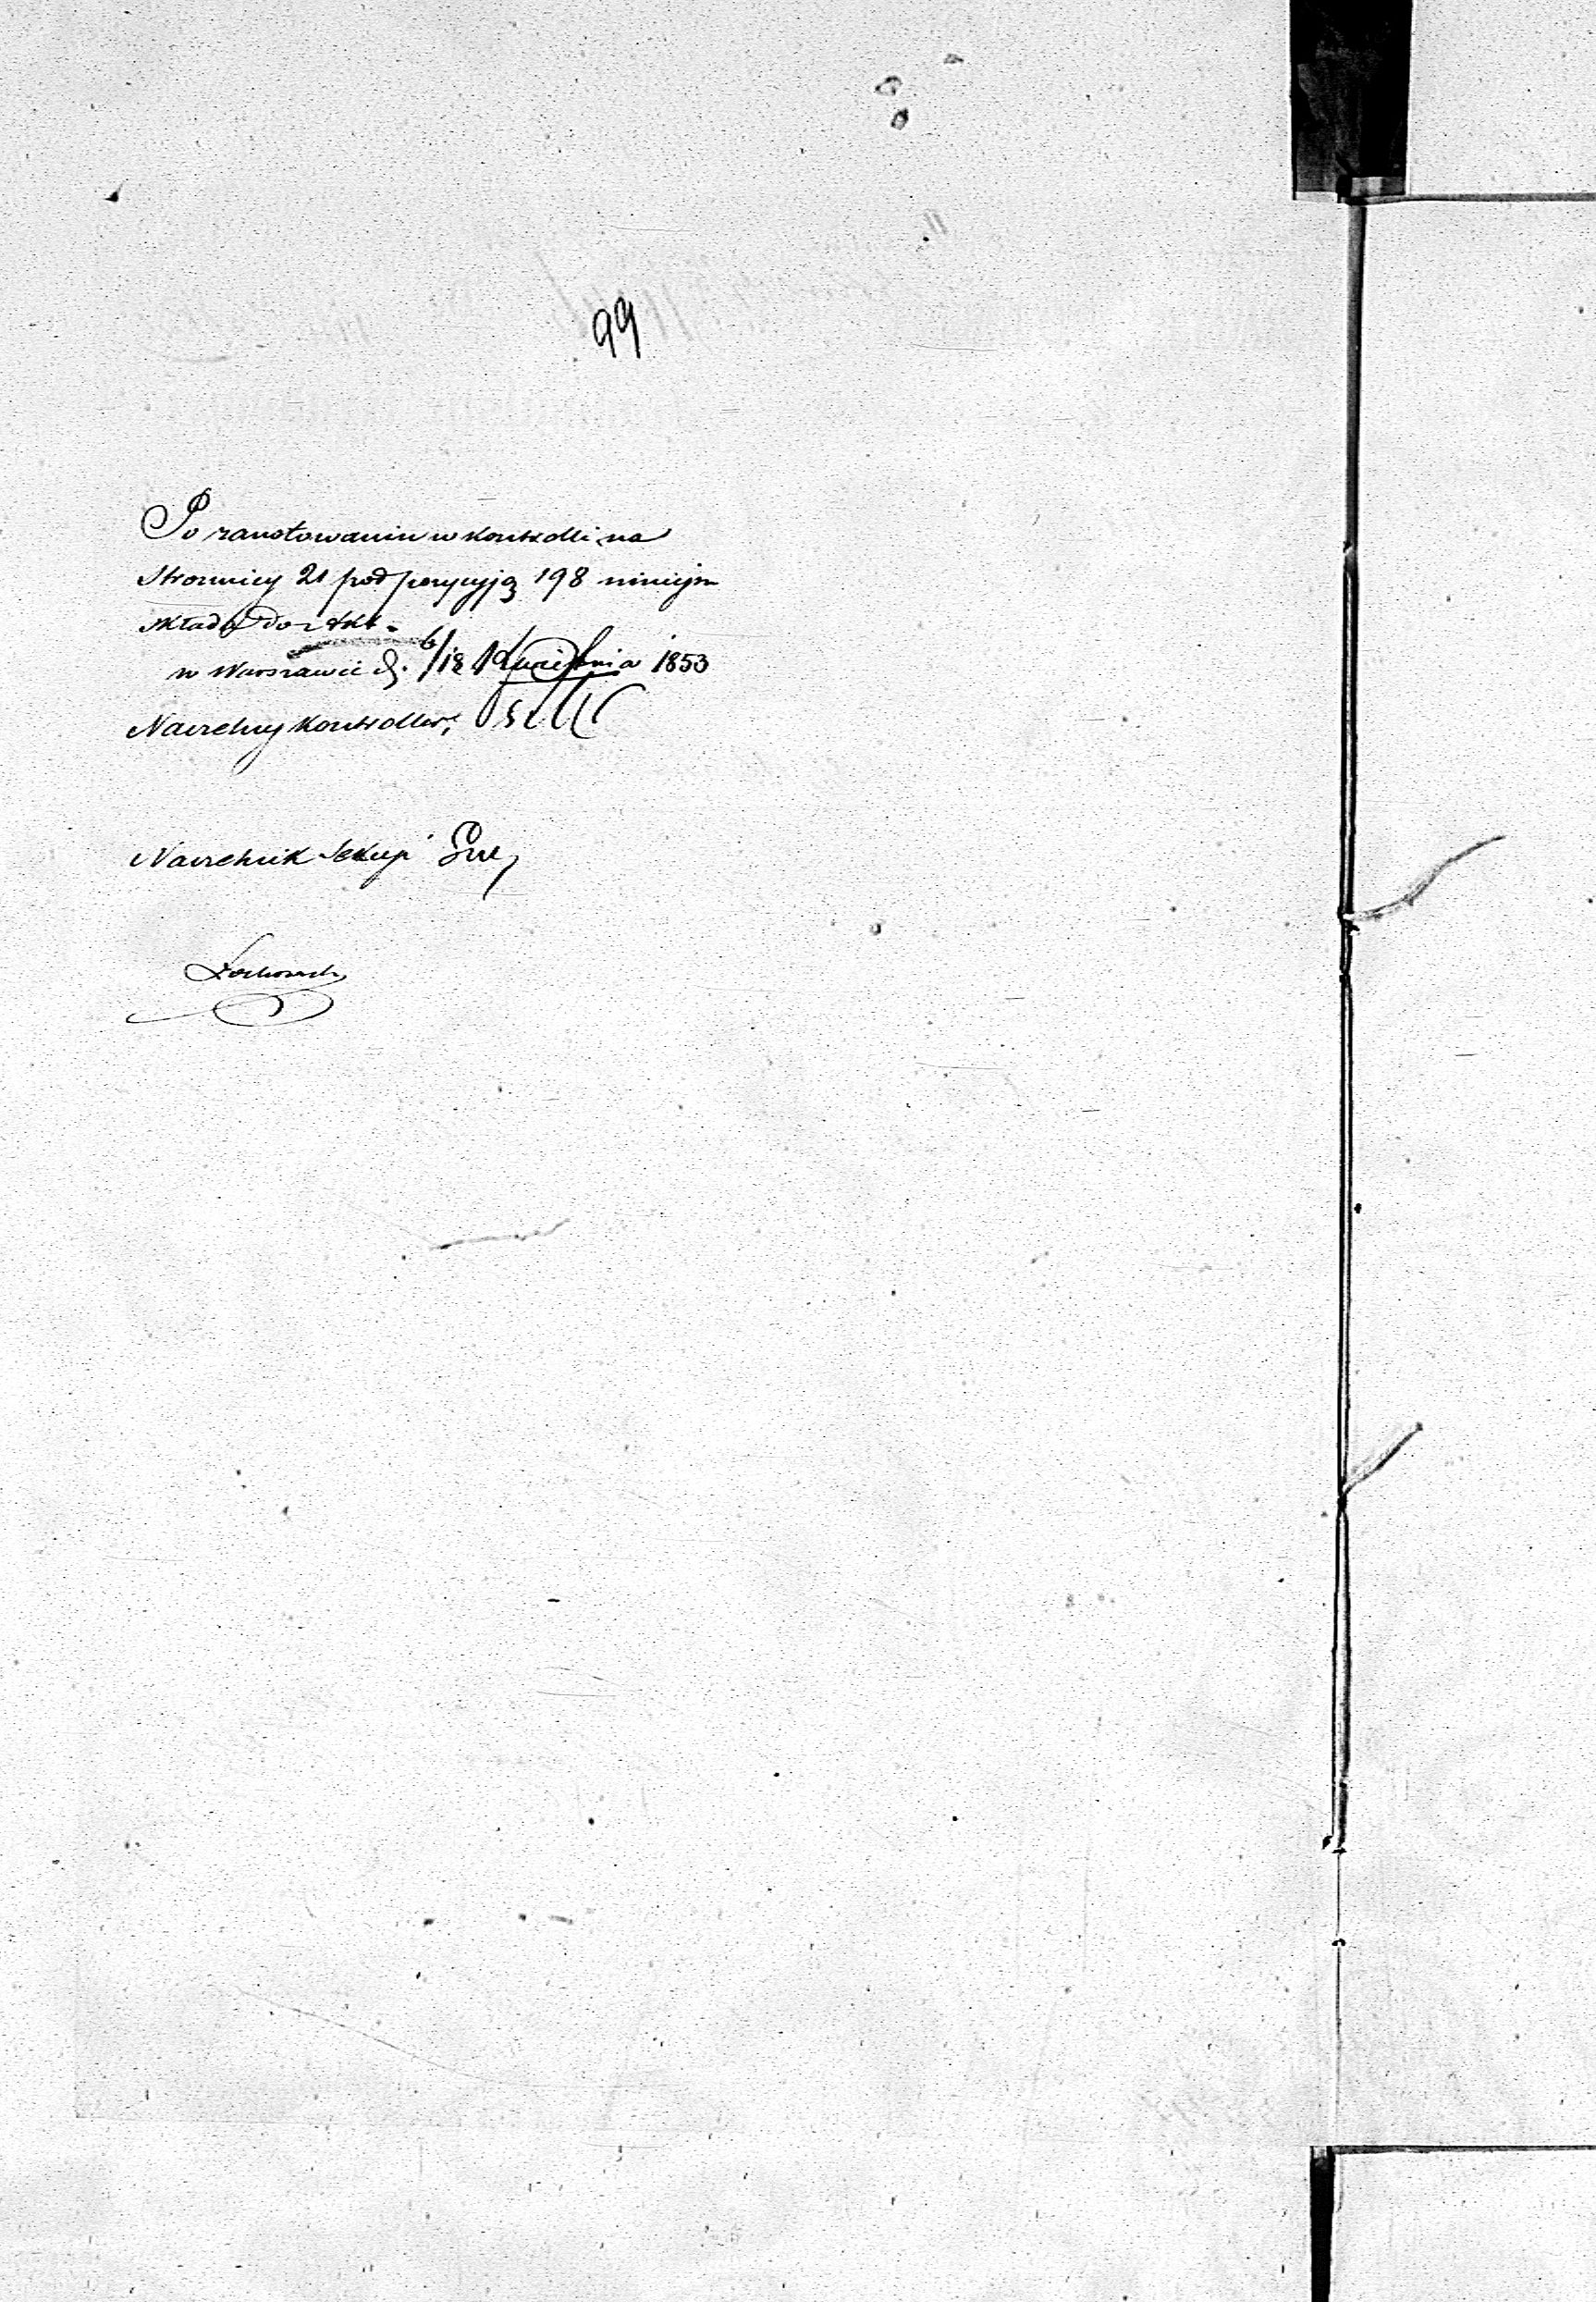 99
Po zanotowaniu w kontrolli na
Stronnicy 21 pod pozycyją 198 niniejsz
składa do akt.
w Warszawie d. 6/18 Kwietnia 1853
Naczelny Kontroller
Naczelnik Sekcyi